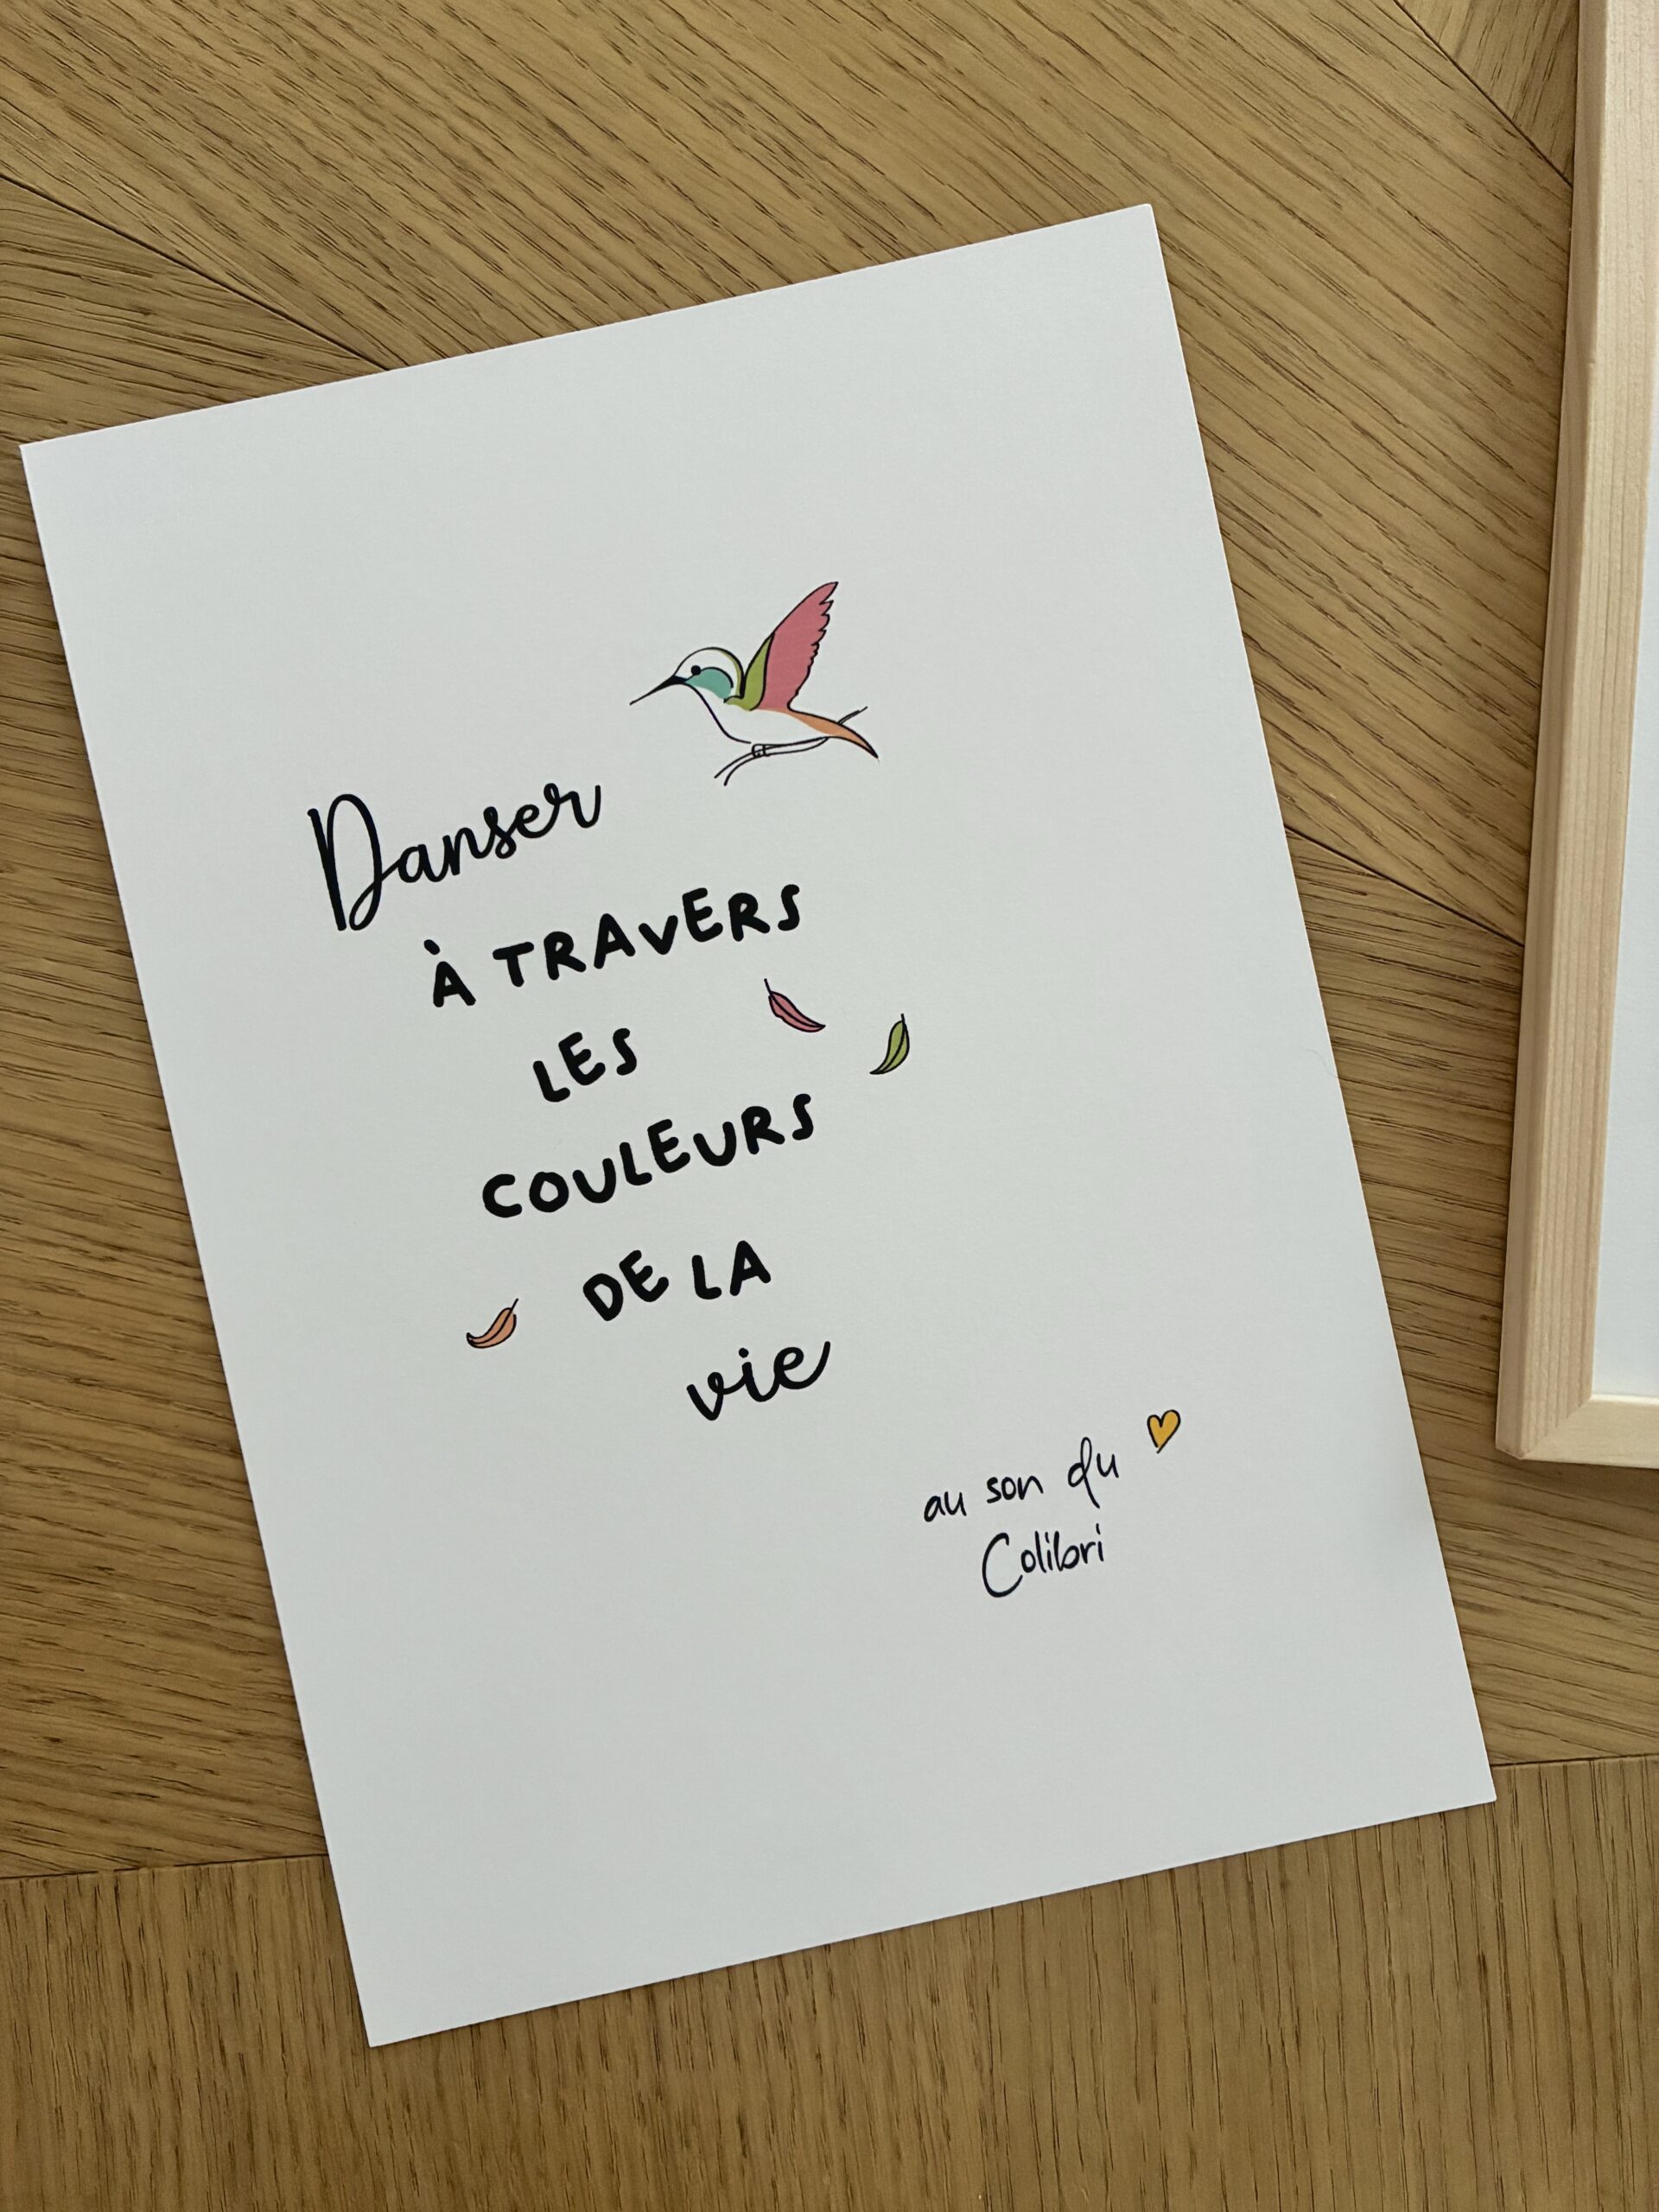 Danser
À TRAVERS
LES
COULEURS
DE LA
vie
au son du
Colibri